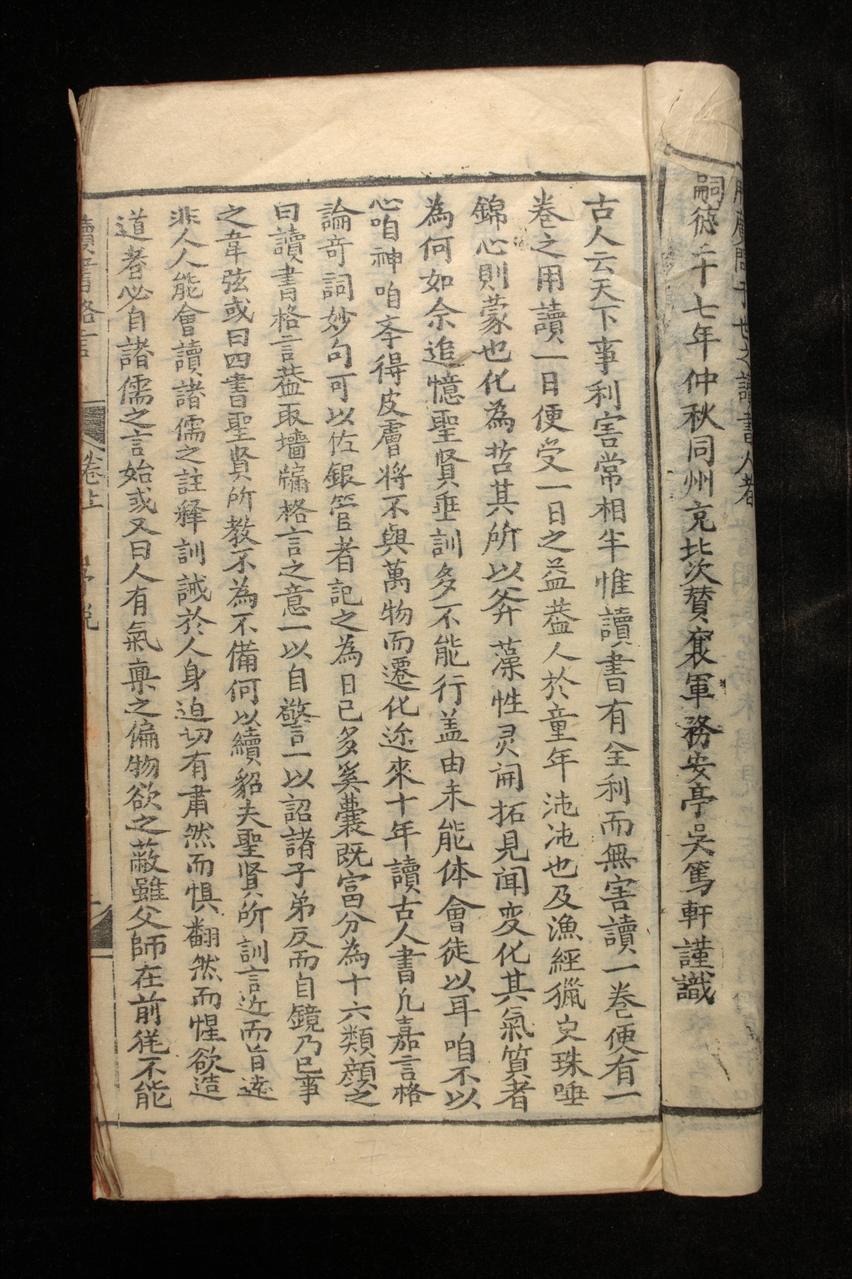 廣問于世之讀書人者
嗣德二十七年仲秋同州充北次贊襄軍務安亭吳篤軒謹識
古人云天下事利害常相半惟讀書有全利而無害讀一巻便有一
巻之用讀一日便受一日之益蓋人於童年沌沌也及漁經獵史珠唾
錦心則蒙也化為哲其所以斧藻性灵開拓見聞変化其氣質者
為何如余追憶聖賢垂訓多不能行盖由未能体會徒以耳咱不以
心咱神咱夲得皮膚将不與萬物而遷化近來十年讀古人書凢嘉言格
論奇詞妙句可以佐銀管者記之為日已多奚囊既富分為十六類顔之
曰讀書格言葢取墻牖格言之意一以自警一以詔諸子弟反而自鏡乃已事
之韋弦或曰四書聖賢所教不為不備何以續貂夫聖賢所訓言近而旨遠
非人人能會讀諸儒之註释訓誡於人身迫切有肅然而惧翻然而惺欲造
道者必自諸儒之言始或又曰人有氣稟之偏物欲之蔽雖父師在前従不能
讀書格言 巻上 學說